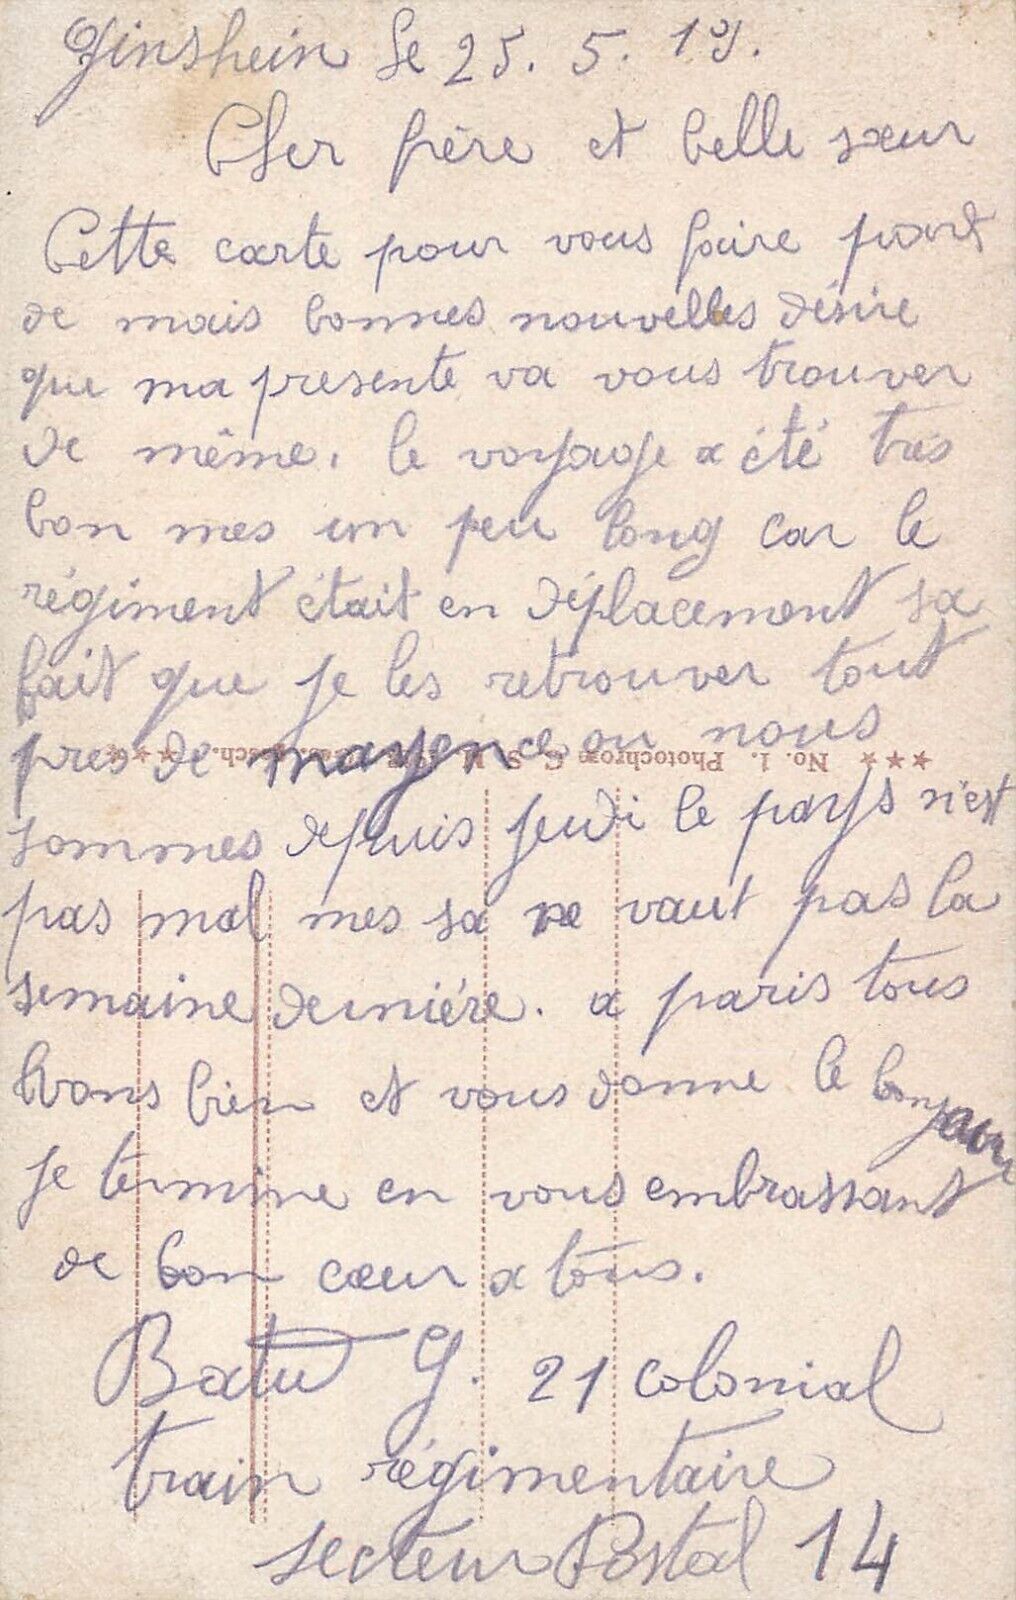 Ginshein le 25. 5. 19.
Cher frère et belle sœur
Cette carte pour vous faire part
de mais bonnes nouvelles désire
que ma presente va vous trouver
de même. le voyage a été très
bon mes un peu long car le
régiment était en déplacement sa
fait que je les retrouver tout
pres de mayence ou nous
*** No. 1. Photochrom
sommes depuis jeudi le pays n'est
pas mal mes sa ne vaut pas la
semaine derniére. a paris tous
vons bien et vous donne le bonjour
je termine en vous embrassant
de bon cœur a tous.
G. 21 colonial
train régimentaire
secteur Postal 14